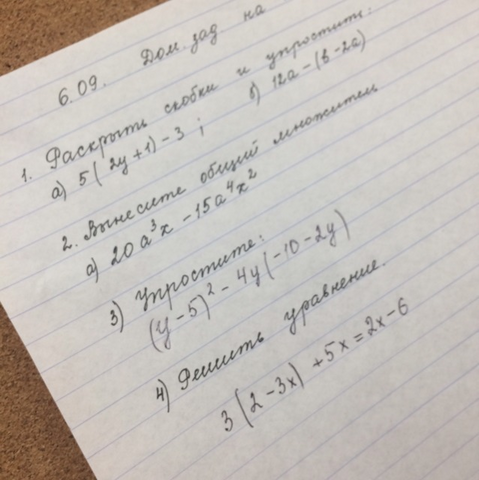 6.09. Дом. зад на
1. Раскрыть скобки и упростить:
а) 5(2y+1)-3; б) 12a-(b-2a)
2. Вынесите общий множитель
а) 20a³x - 15a⁴x²
3) Упростите:
(y-5)² - 4y(-10-2y)
4) Решить уравнение.
3(2-3x)+5x=2x-6